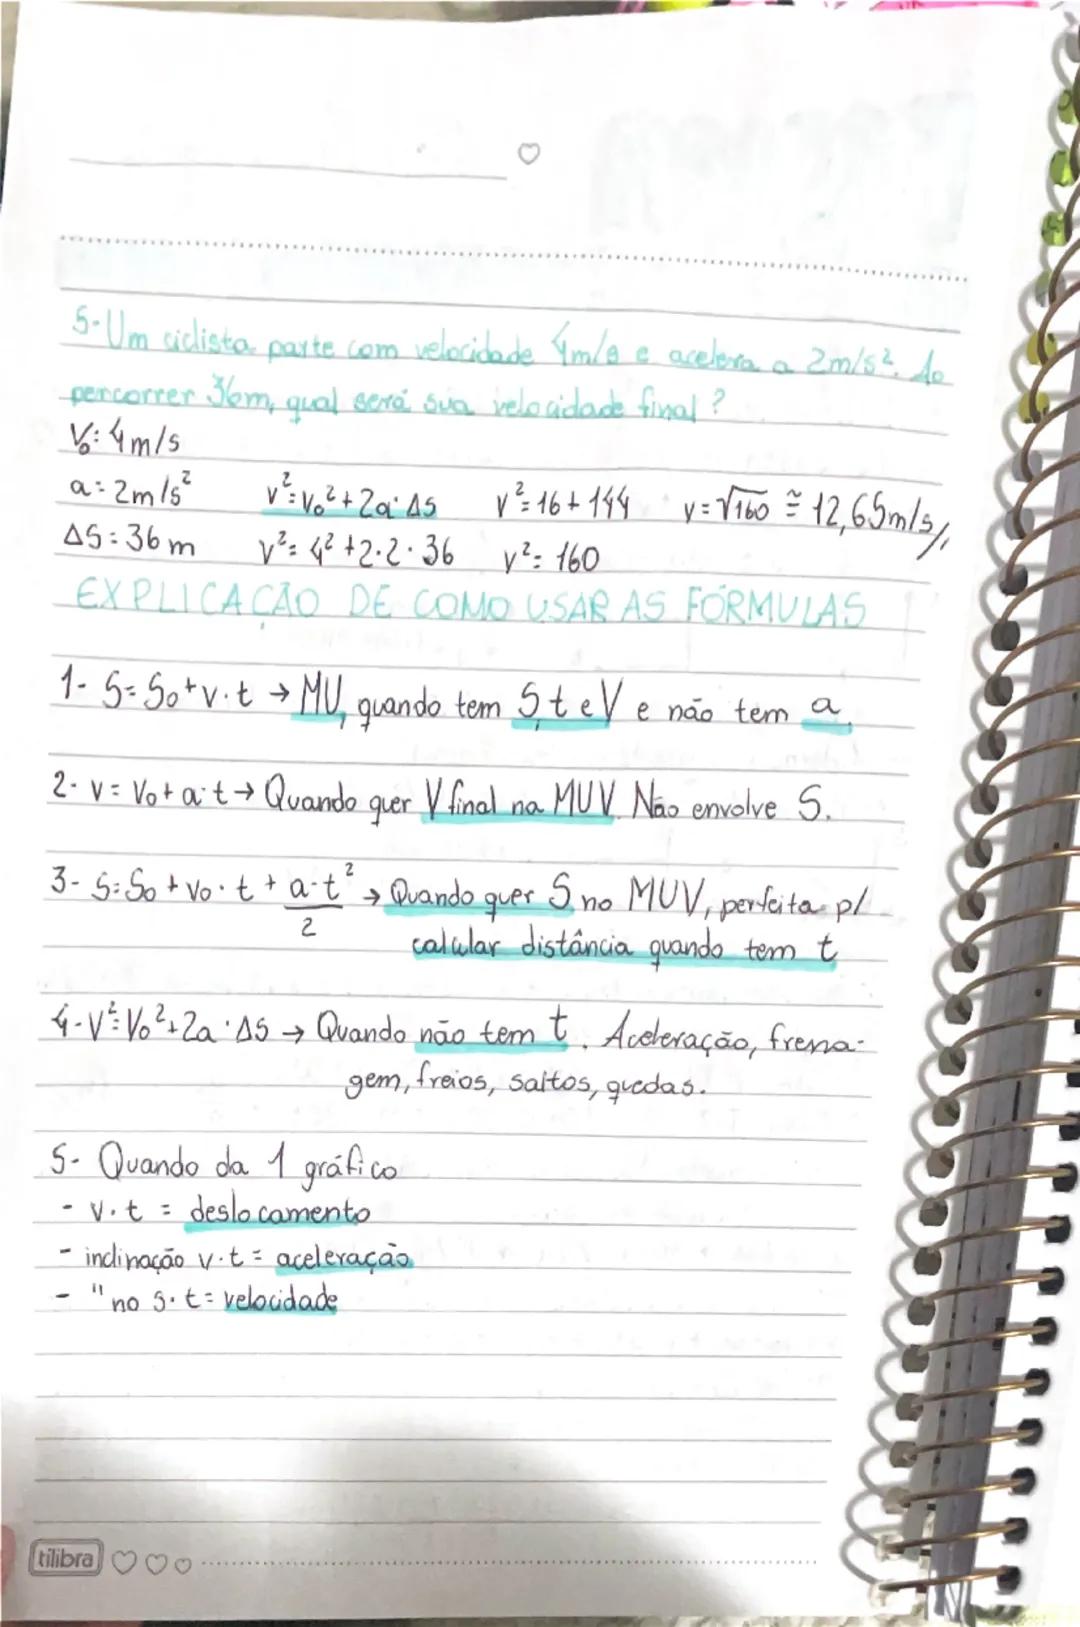 5-Um ciclista parte com velocidade 4m/s e acelera a 2m/s². Ao
percorrer 36m, qual será sua velocidade final?
V₀: 4m/s
a= 2m/s² v²=v₀²+2a·ΔS v²=16+144 v=√160 ≅ 12,65m/s//
ΔS: 36m v²= 4²+2·2·36 v²= 160
EXPLICAÇÃO DE COMO USAR AS FÓRMULAS
1- S=S₀+v·t → MU, quando tem S,t e V e não tem a.
2- v= V₀+a·t → Quando quer V final na MUV. Não envolve S.
3- S=S₀+v₀·t+a·t²/2 → Quando quer S no MUV, perfeita p/
calcular distância quando tem t
4-V²=V₀²+2a·ΔS → Quando não tem t. Aceleração, frena-
gem, freios, saltos, quedas.
5- Quando da 1 gráfico
- v·t = deslocamento
- inclinação v·t= aceleração
- " no s·t= velocidade
tilibra